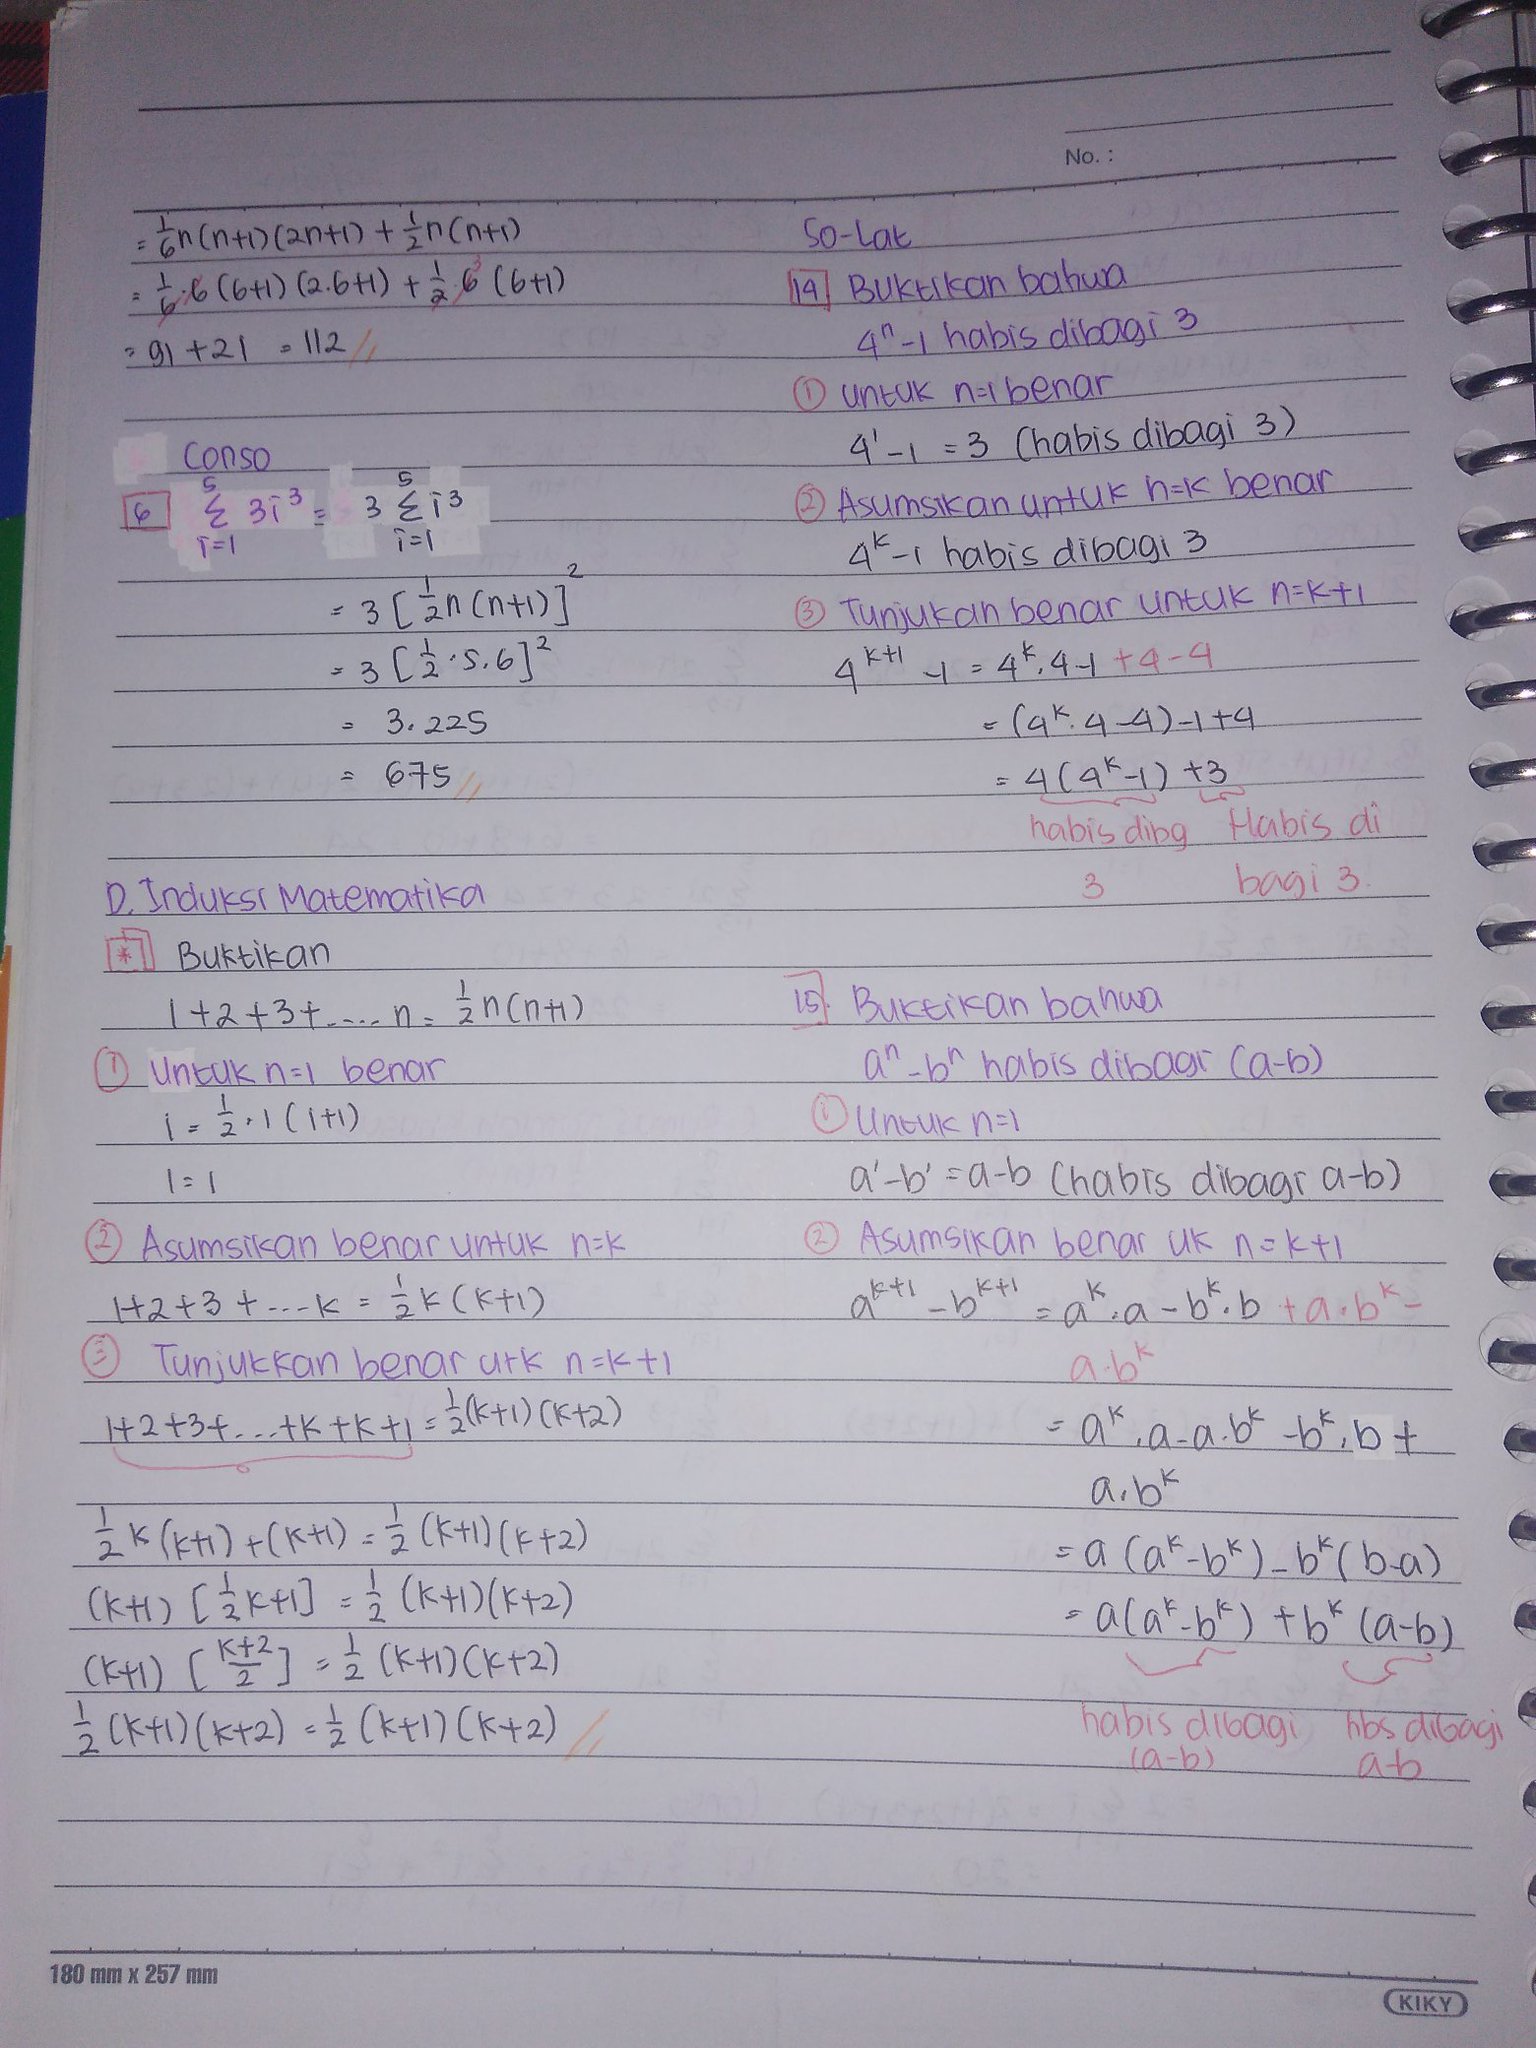 No. :
= 1/6 n(n+1)(2n+1) + 1/2 n(n+1)
= 1/6 · 6 (6+1) (2.6+1) + 1/2 · 6 3 (6+1)
= 91 + 21 = 112 //
Conso
6 5 Σ i=1 3i³ = 3 5 Σ i=1 i³
= 3 [1/2 n (n+1)]²
= 3 [1/2 · 5 . 6]²
= 3 . 225
= 675 //
D. Induksi Matematika
* Buktikan
1+2+3+ ..... n = 1/2 n(n+1)
① Untuk n=1 benar
1 = 1/2 · 1 (1+1)
1 = 1
② Asumsikan benar untuk n=k
1+2+3 + ... k = 1/2 k (k+1)
③ Tunjukkan benar utk n=k+1
1+2+3+ ... +k +k+1 = 1/2 (k+1)(k+2)
1/2 k (k+1) + (k+1) = 1/2 (k+1)(k+2)
(k+1) [1/2 k+1] = 1/2 (k+1)(k+2)
(k+1) [k+2/2] = 1/2 (k+1)(k+2)
1/2 (k+1)(k+2) = 1/2 (k+1)(k+2) //
So-Lat
14 Buktikan bahwa
4ⁿ-1 habis dibagi 3
① untuk n=1 benar
4¹-1 = 3 (habis dibagi 3)
② Asumsikan untuk n=k benar
4ᵏ-1 habis dibagi 3
③ Tunjukan benar untuk n=k+1
4ᵏ⁺¹ -1 = 4ᵏ. 4-1 +4-4
= (4ᵏ. 4-4) -1+4
= 4 (4ᵏ-1) +3
habis dibg Habis di
3 bagi 3.
15. Buktikan bahwa
aⁿ-bⁿ habis dibagi (a-b)
① Untuk n=1
a¹-b¹ = a-b (habis dibagi a-b)
② Asumsikan benar uk n=k+1
aᵏ⁺¹ -bᵏ⁺¹ = aᵏ.a - bᵏ.b + a.bᵏ -
a.bᵏ
= aᵏ.a - a.bᵏ -bᵏ.b +
a.bᵏ
= a (aᵏ-bᵏ) - bᵏ(b-a)
= a(aᵏ-bᵏ) + bᵏ (a-b)
habis dibagi hbs dibagi
(a-b) a-b
180 mm x 257 mm
KIKY